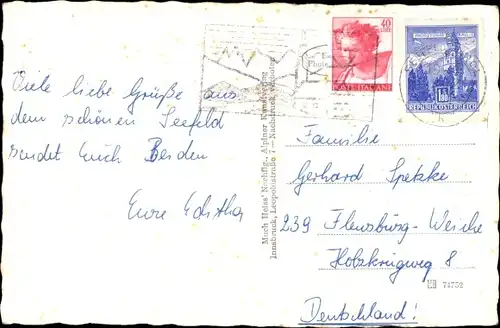 Viele liebe Grüße aus
dem schönen Seefeld
sendet Euch Beiden
Eure Editha
Much Heiss' Nachflg., Alpiner Kunstverlag
Innsbruck, Leopoldstraße 7 — Nachdruck verboten
40
LIRE
POSTE ITALIANE
1.80
REPUBLIK ÖSTERREICH
Familie
Gerhard Spetzke
239 Flensburg-Weiche
Holzkrugweg 8
74752
Deutschland!